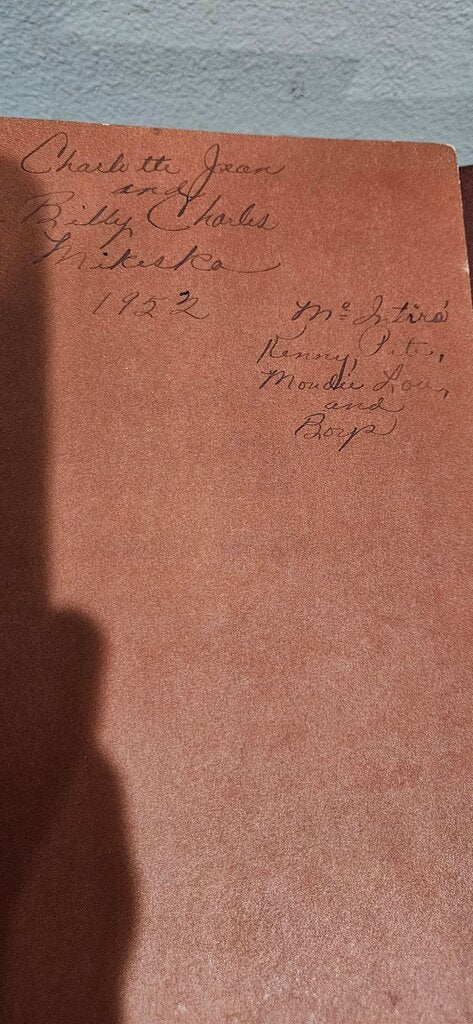 Charlotte Jean
and
Billy Charles
Mikeska
1952
Mc Intire
Kenny, Pete,
Maudie Lou,
and
Boys